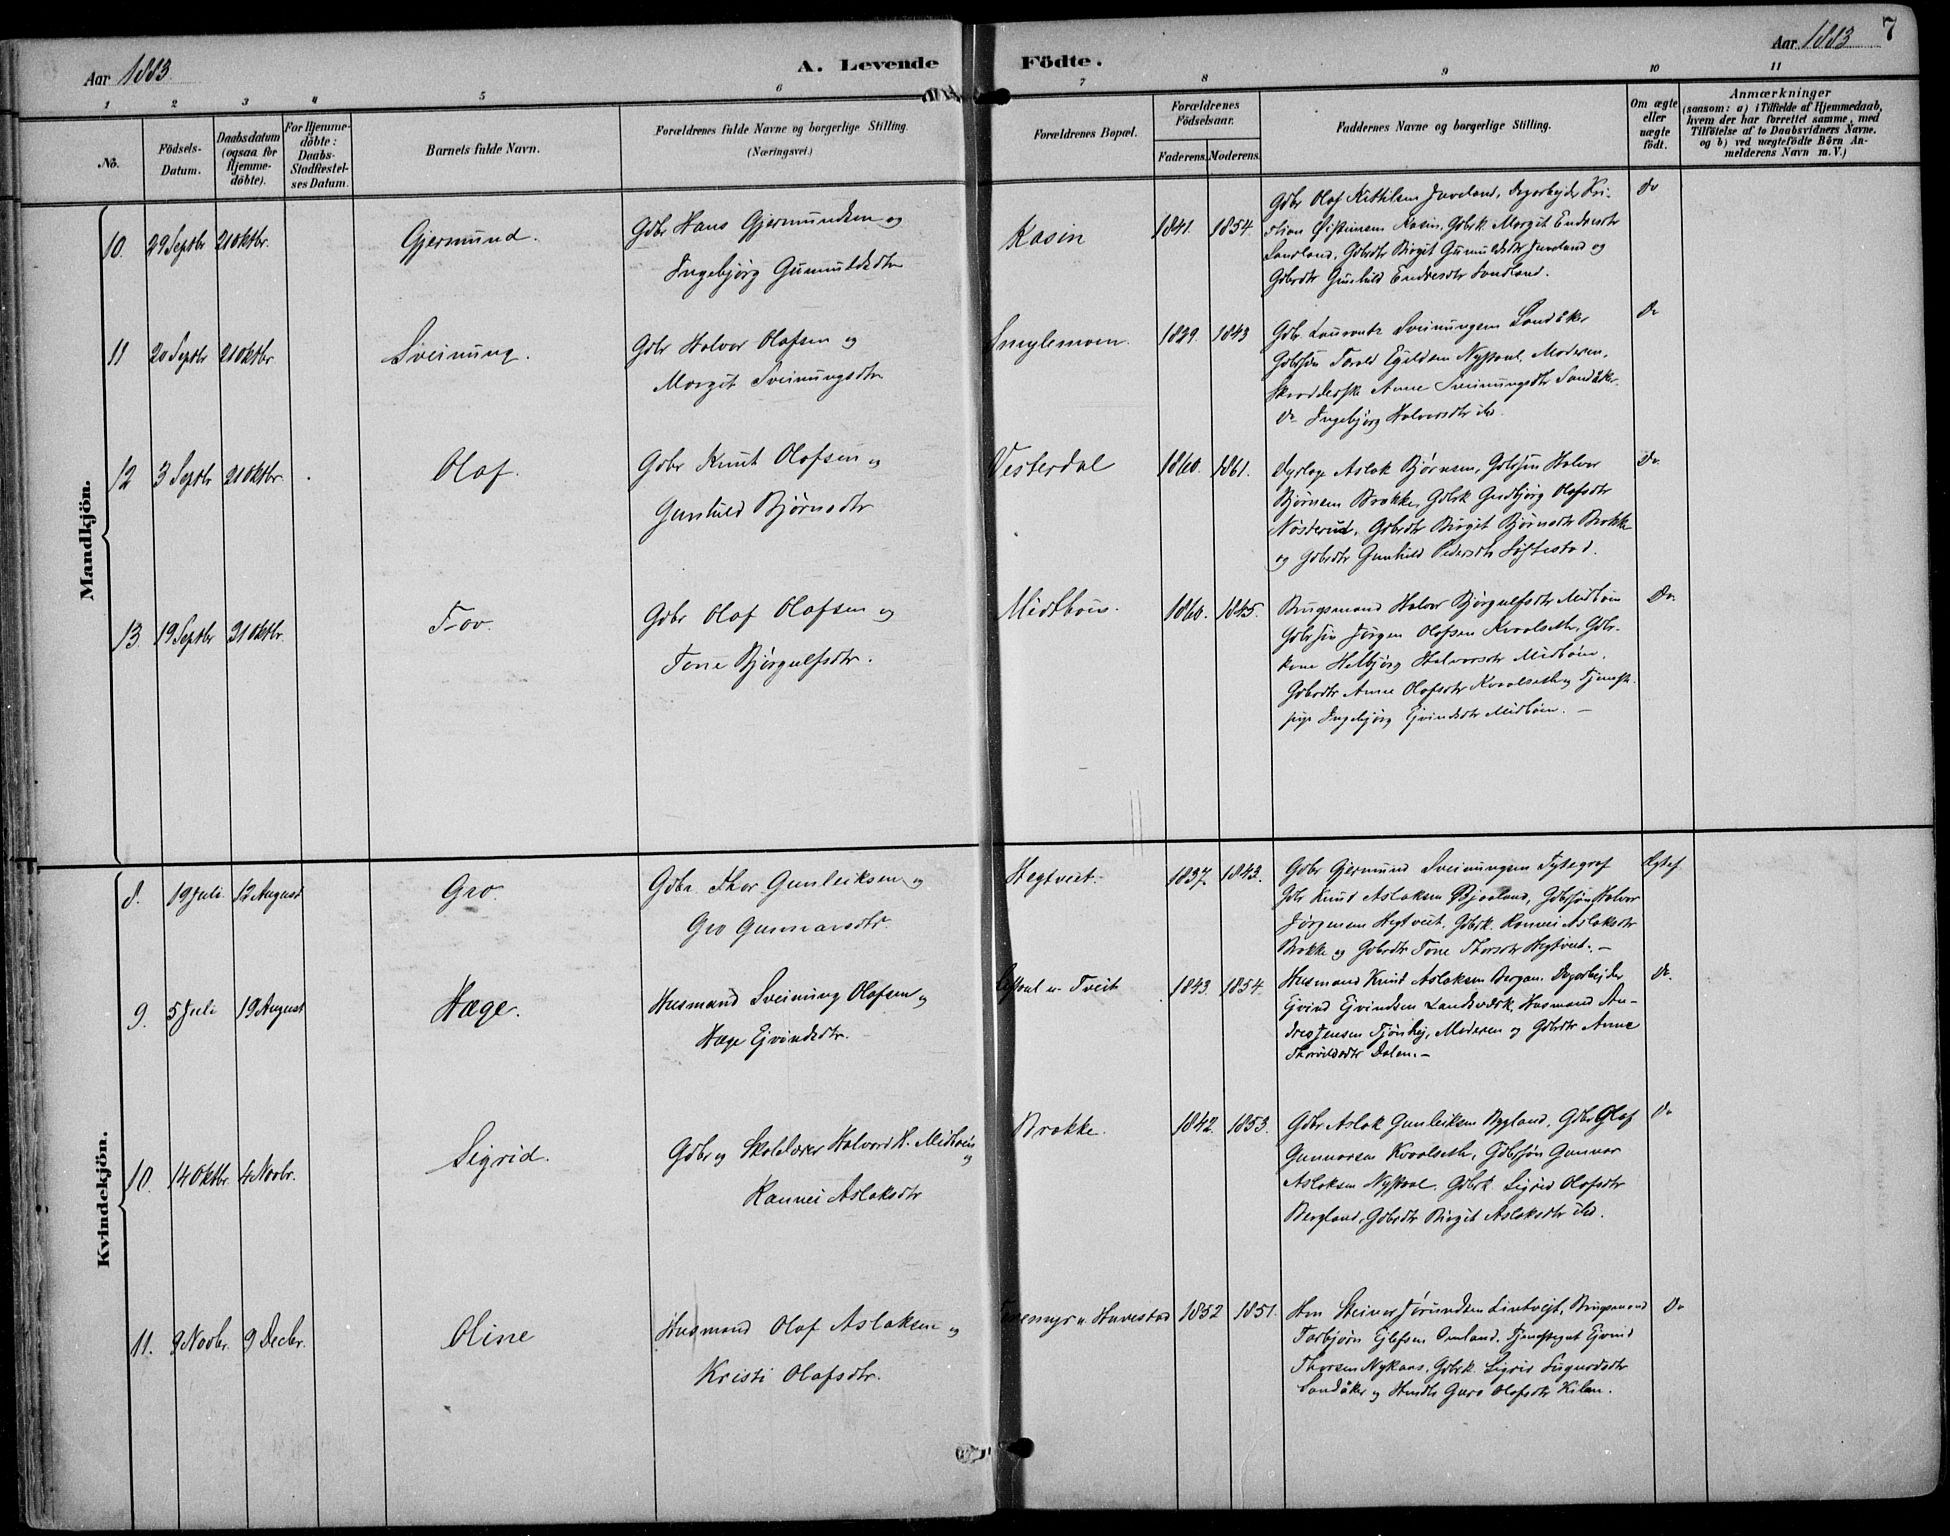 Aar 1883.
A. Levende Födte.
Aar 1883
7
1 2 3 4 5 6 7 8 9 10 11
No.
Födsels-Datum.
Daabsdatum (ogsaa for Hjemme-döbte).
For Hjemme-döbte: Daabs-Stadfæstel-ses Datum.
Barnets fulde Navn.
Forældrenes fulde Navne og borgerlige Stilling. (Næringsvei.)
Forældrenes Bopæl.
Forældrenes Födselsaar.
Faderens. Moderens.
Faddernes Navne og borgerlige Stilling.
Om ægte eller uægte födt.
Anmærkninger
(saasom: a) i Tilfælde af Hjemmedaab, hvem der har forrettet samme, med Tilföielse af to Daabsvidners Navne, og b) ved uægtefödte Börn An-melderens Navn m. V.)
Mandkjön.
10. 29 Septbr 21 Oktbr. Gjermund.
Gdbr Hans Gjermundsen og
Ingebjørg Gunnulfsdtr
Kasin 1841. 1854.
Gdbr Olaf Kittilsen Juveland, Dagarbejder Kri-
stian Øisteinsen Kasin, Gdbrk. Margit Endresdtr
Sandland, Gdbrdtr Birgit Gunnulfsdtr Juveland og
Gdbrdtr Gunhild Endresdtr Sandland.
Do
11 20 Septbr 21 Oktbr. Sveinung.
Gdbr Halvor Olafsen og
Margit Sveinungsdtr
Smylemoen. 1839. 1843
Gdbr. Laurantz Sveinungsen Sandåker
Gdbrsøn Torald Egildsen Nystaul, Moderen,
Anne Sveinungsdtr Sandåker.
Do Ingebjørg Halvorsdtr ibd.
Do
12 3 Septbr 21 Oktbr. Olaf.
Gdbr Knut Olafsen og
Gunhild Bjørnsdtr
Vesterdal 1860. 1861.
Dyrlæge Aslak Bjørnsen, Gdbrsøn Halvor
Bjørnsen Brokke, Gdbrk Gudbjørg Olafsdtr
Nøsterud, Gdbrdtr Birgit Bjørnsdtr Brokke
og Gdbrdtr Gunhild Pedersdtr Søftestad.
Do.
13. 19 Septbr 21 Oktbr. Tov.
Gdbr Olaf Olafsen og
Tone Bjørgulfsdtr.
Midtbøen. 1860. 1845.
Brugsmand Halvor Bjørgulfsdtr Midbøen
Gdbrsøn Jørgen Olafsen Kvaalseth, Gdbr-
kone Helbjørg Halvorsdtr Midbøen,
Gdbrdtr Anne Olafsdtr Kvaalseth og Tjenest-
pige Ingebjørg Ejvindsdtr Midbøen. —
Do.
Kvindekjön.
8. 19 Juli 12 August Gro.
Gdbr. Thor Gunleiksen og
Gro Gunnarsdtr.
Hegtveit. 1837. 1843.
Gdbr Gjermund Sveinungsen Tytegraf
Gdbr Knud Aslaksen Bjaaland, Gdbrsøn Halvor
Jørgensen Hegtveit, Gdbrk. Rannei Aslaksdtr
Brokke og Gdbrdtr Tone Thorsdtr Hegtveit. —
Ægtef.
9. 5 Juli 19 August Hæge.
Husmand Sveinung Olafsen og
Hæge Ejvindsdtr.
u. Tveit 1843. 1854.
Husmand Knud Aslaksen Bergan. Dagarbejder
Ejvind Ejvindsen Landsværk. Husmand An-
dres Jensen Tjønhej, Moderen og Gdbrdtr Anne
Thorvildsdtr Dalen. —
Do.
10. 14 Oktbr. 4 Novbr. Sigrid.
Gdbr og Skolelærer Halvord H. Midbøen og
Rannei Aslaksdtr
Brokke. 1842. 1853.
Gdbr Aslak Gunleiksen Bygland, Gdbr Olaf
Gunnarsen Kvaalseth, Gdbrsøn Gunnar
Aslaksen Nystaul, Gdbrk. Sigrid Olafsdtr
Bergland, Gdbrdtr Birgit Aslaksdtr ibd.
Do
11. 9 Novbr. 9 Decbr. Oline
Husmand Olaf Aslaksen og
Kristi Olafsdtr.
u. Havestad 1852 1851.
Hm Steinar Jørundsen Lintvejt, Brugsmand
Torbjørn Ejlefsen Omland, Tjenestegut Ejvind
Thorsen Nykaas, Gdbrk. Sigrid
Sandåker og Guro Olafsdtr Kilen.
Do